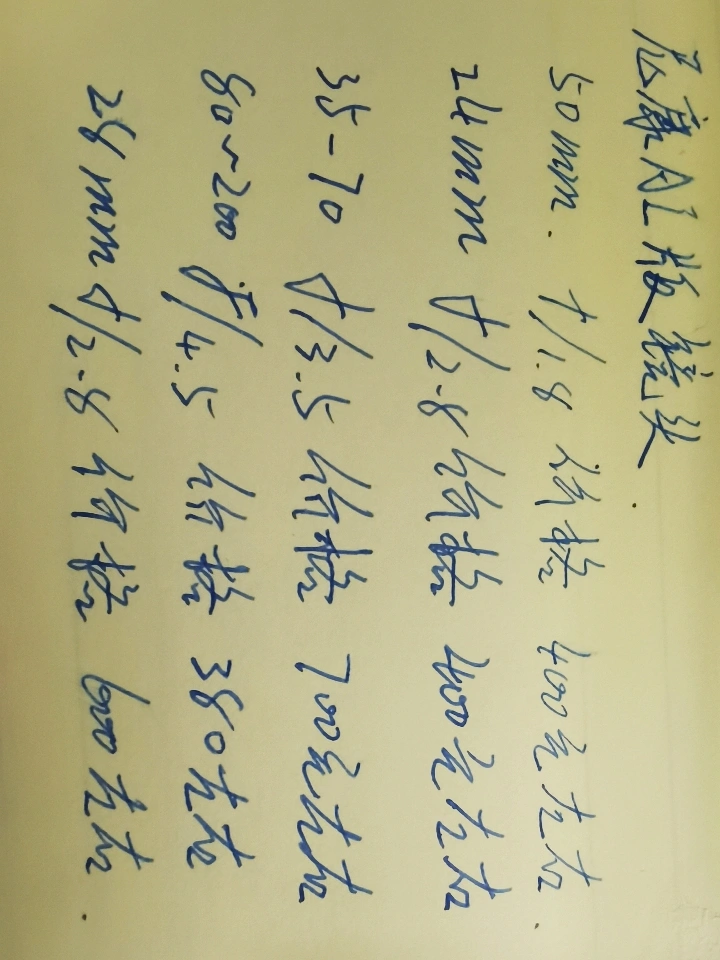 尼康AI版镜头.
50mm. f/1.8 价格 400元左右.
24mm f/2.8 价格 400元左右
35-70 f/3.5 价格 700元左右
80~200 f/4.5 价格 380左右
28mm f/2.8 价格 600左右.